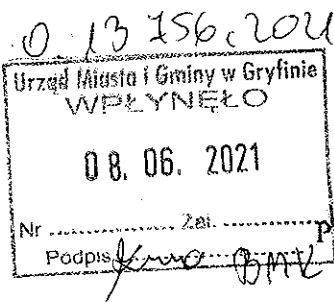 0.13756.2021
Urząd Miasta i Gminy w Gryfinie
WPŁYNĘŁO
08. 06. 2021
Nr .................. Zał. .................. P
Podpis BMK